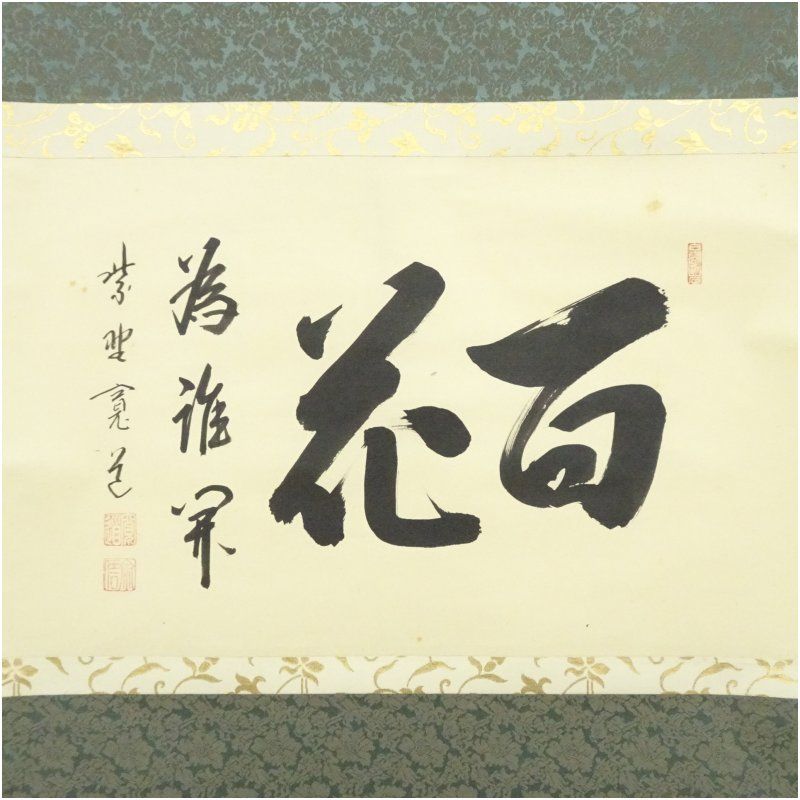 百花
為誰開
紫野寛道